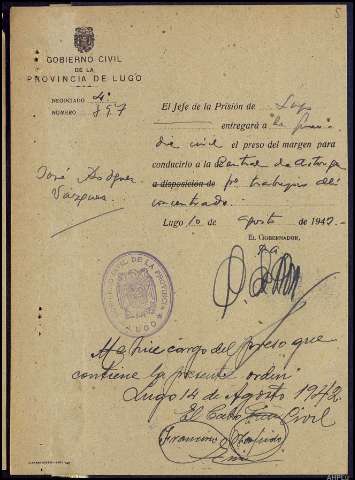 5
GOBIERNO CIVIL
DE LA
PROVINCIA DE LUGO
NEGOCIADO 4º
NÚMERO 897
El Jefe de la Prisión de Lugo
entregará a "la guar
dia civil el preso del margen para
conducirlo a la Central de Astorga
a disposición de pª trabajos allí
concentrado.
José
Vázquez
Lugo 10 de agosto de 1942.-
EL GOBERNADOR,
GOBIERNO CIVIL DE LA PROVINCIA
LUGO
Me hice cargo del preso que
contiene la presente orden
Lugo 14 de Agosto 1942
El Cabo Civil
Francisco
AHPLu